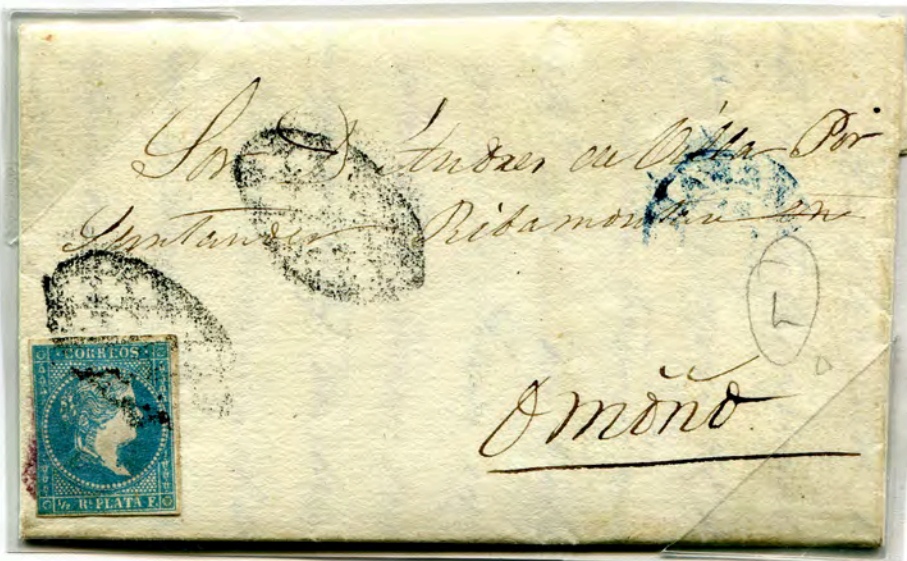 Sor D. Andres de Villa Por
Santander Ribamontan en
Omoño.
CORREOS
1/2 Rl. PLATA F.